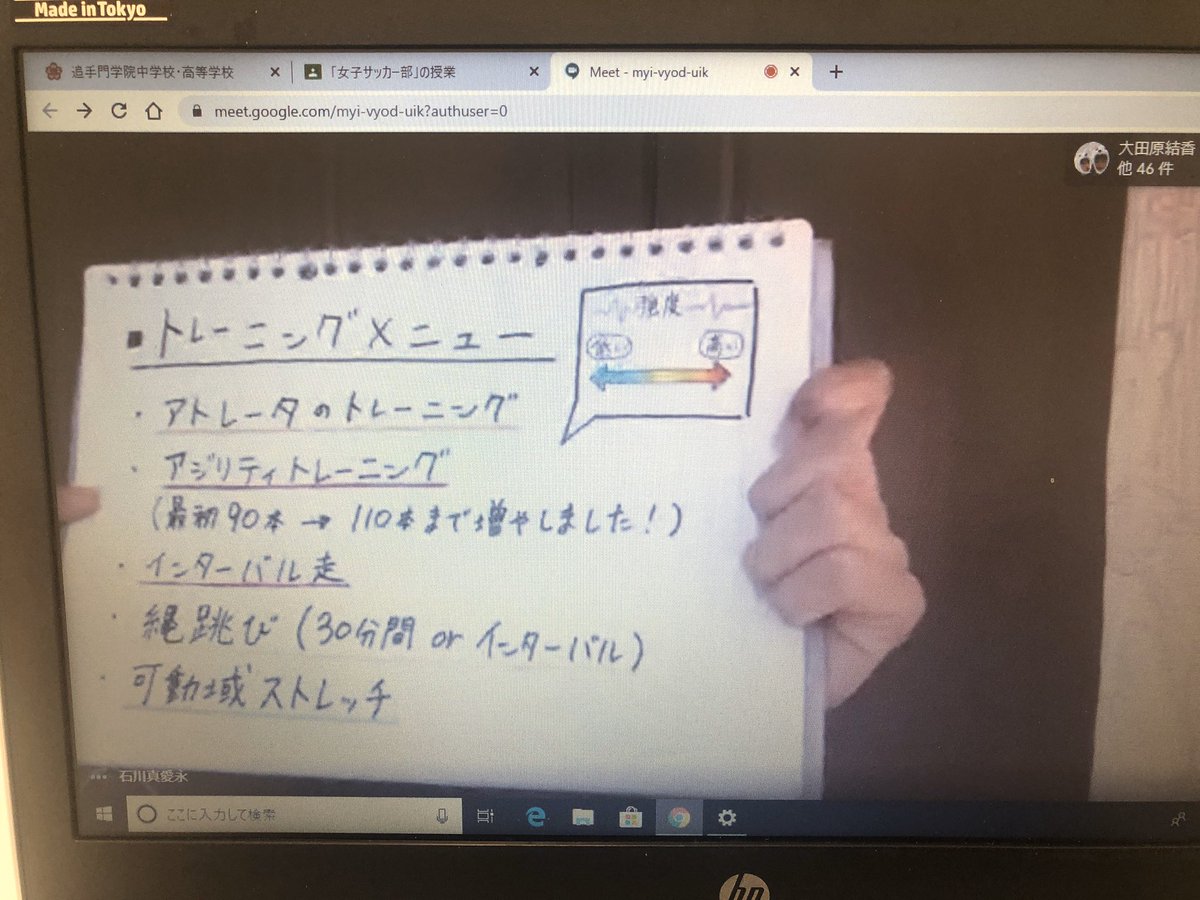 Made in Tokyo
追手門学院中学校・高等学校
「女子サッカー部」の授業
Meet - myi-vyod-uik
meet.google.com/myi-vyod-uik?authuser=0
大田原結香
他 46 件
強度
低い 高い
■トレーニングメニュー
・アトレータのトレーニング
・アジリティトレーニング
(最初90本→110本まで増やしました!)
・インターバル走
・縄跳び(30分間 or インターバル)
・可動域ストレッチ
石川真愛永
ここに入力して検索
hp